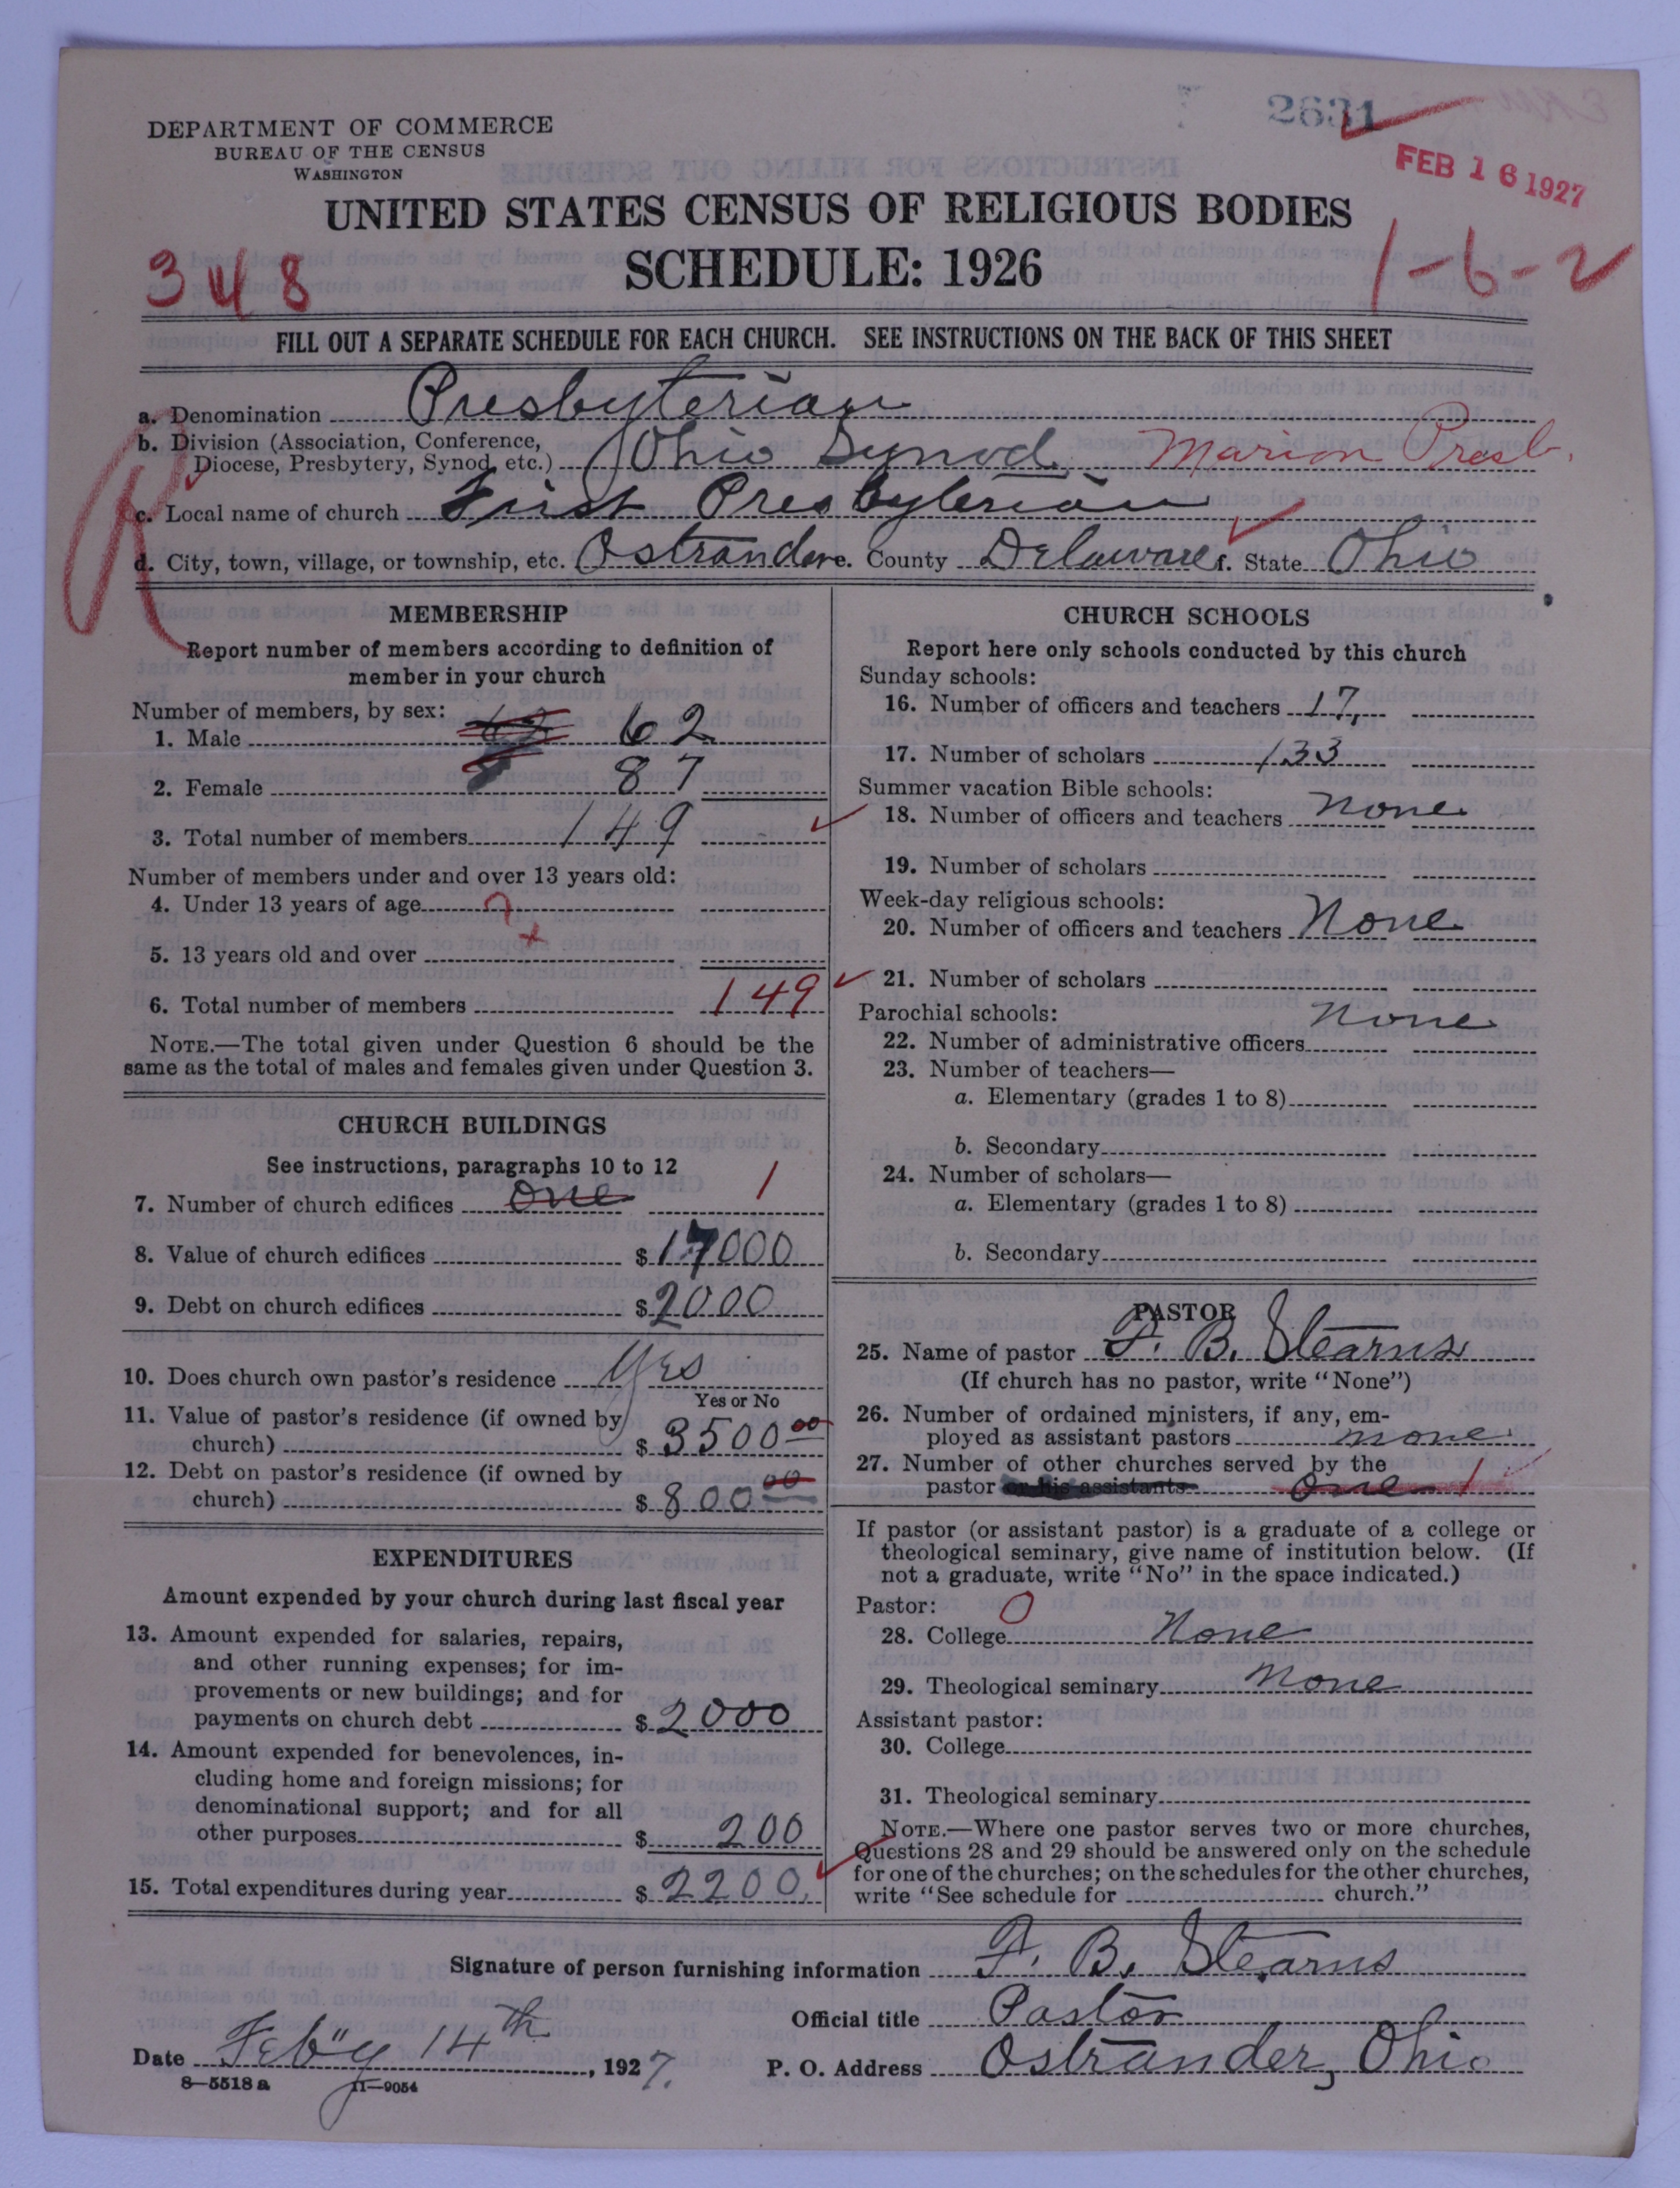 2631
DEPARTMENT OF COMMERCE
BUREAU OF THE CENSUS
WASHINGTON
FEB 16 1927
UNITED STATES CENSUS OF RELIGIOUS BODIES
SCHEDULE: 1926
348
1-6-2
FILL OUT A SEPARATE SCHEDULE FOR EACH CHURCH. SEE INSTRUCTIONS ON THE BACK OF THIS SHEET
a. Denomination Presbyterian
b. Division (Association, Conference,
Diocese, Presbytery, Synod, etc.) Ohio Synod Marion Presb.
c. Local name of church First Presbyterian
d. City, town, village, or township, etc. Ostrander e. County Delaware f. State Ohio
R
MEMBERSHIP
Report number of members according to definition of
member in your church
Number of members, by sex:
1. Male 62
2. Female 87
3. Total number of members 149
Number of members under and over 13 years old:
4. Under 13 years of age ?
5. 13 years old and over
6. Total number of members 149
NOTE.—The total given under Question 6 should be the
same as the total of males and females given under Question 3.
CHURCH BUILDINGS
See instructions, paragraphs 10 to 12
7. Number of church edifices one 1
8. Value of church edifices $17000
9. Debt on church edifices $2000
10. Does church own pastor's residence Yes
Yes or No
11. Value of pastor's residence (if owned by
church) $3500 00
12. Debt on pastor's residence (if owned by
church) $800 00
EXPENDITURES
Amount expended by your church during last fiscal year
13. Amount expended for salaries, repairs,
and other running expenses; for im-
provements or new buildings; and for
payments on church debt $2000
14. Amount expended for benevolences, in-
cluding home and foreign missions; for
denominational support; and for all
other purposes $200
15. Total expenditures during year $2200
CHURCH SCHOOLS
Report here only schools conducted by this church
Sunday schools:
16. Number of officers and teachers 17
17. Number of scholars 133
Summer vacation Bible schools:
18. Number of officers and teachers none
19. Number of scholars
Week-day religious schools:
20. Number of officers and teachers None
21. Number of scholars
Parochial schools:
none
22. Number of administrative officers
23. Number of teachers—
a. Elementary (grades 1 to 8)
b. Secondary
24. Number of scholars—
a. Elementary (grades 1 to 8)
b. Secondary
PASTOR
25. Name of pastor F. B. Stearns
(If church has no pastor, write "None")
26. Number of ordained ministers, if any, em-
ployed as assistant pastors none
27. Number of other churches served by the
pastor or his assistants one 1
If pastor (or assistant pastor) is a graduate of a college or
theological seminary, give name of institution below. (If
not a graduate, write "No" in the space indicated.)
Pastor: 0
28. College None
29. Theological seminary None
Assistant pastor:
30. College
31. Theological seminary
NOTE.—Where one pastor serves two or more churches,
Questions 28 and 29 should be answered only on the schedule
for one of the churches; on the schedules for the other churches,
write "See schedule for church."
Signature of person furnishing information F. B. Stearns
Official title Pastor
Date Feb'y 14th, 1927. P. O. Address Ostrander, Ohio
8—5518 a 11—9054